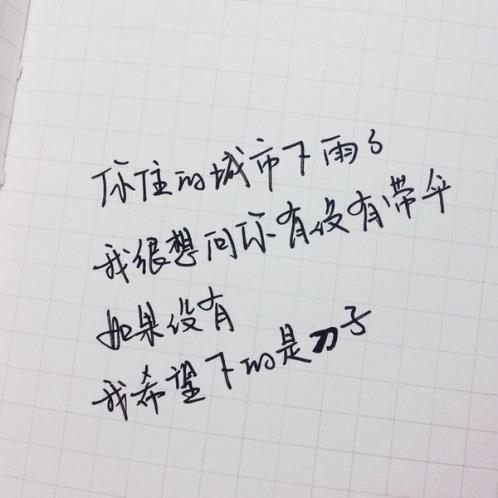 你住的城市下雨了
我很想问你有没有带伞
如果没有
我希望下的是刀子